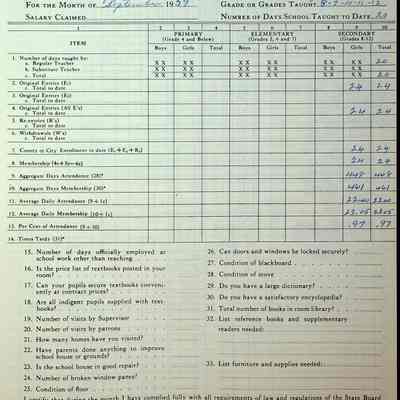 FOR THE MONTH OF September 1959 GRADE OR GRADES TAUGHT 8-9-10-11-12
SALARY CLAIMED NUMBER OF DAYS SCHOOL TAUGHT TO DATE 20
1 2 3 4 5 6 7 8 9 10
ITEM PRIMARY (Grade 4 and Below) ELEMENTARY (Grades 5, 6 and 7) SECONDARY (Grades 8-12)
Boys Girls Total Boys Girls Total Boys Girls Total
1. Number of days taught by:
a. Regular Teacher X X X X X X X X X X X X 20
b. Substitute Teacher X X X X X X X X X X X X
c. Total X X X X X X X X X X X X 20
2. Original Entries (E1)
c. Total to date 24 24
3. Original Entries (E2)
c. Total to date
4. Original Entries (All E's)
c. Total to date 24 24
5. Re-entries (R's)
c. Total to date
6. Withdrawals (W's)
c. Total to date
7. County or City Enrollment to date (E1+E2+R2) 24 24
8. Membership (4c+5c-6c) 24 24
9. Aggregate Days Attendance (28)* 448 448
10. Aggregate Days Membership (30)* 461 461
11. Average Daily Attendance (9÷1c)
12. Average Daily Membership (10÷1c) 23.05 23.05
13. Per Cent of Attendance (9÷10) .97 .97
14. Times Tardy (31)*
15. Number of days officially employed at
school work other than teaching
16. Is the price list of textbooks posted in your
room?
17. Can your pupils secure textbooks conveni-
ently at contract prices?
18. Are all indigent pupils supplied with text-
books?
19. Number of visits by Supervisor
20. Number of visits by patrons
21. How many homes have you visited?
22. Have parents done anything to improve
school house or grounds?
23. Is the school house in good repair?
24. Number of broken window panes?
25. Condition of floor
26. Can doors and windows be locked securely?
27. Condition of blackboard
28. Condition of stove
29. Do you have a large dictionary?
30. Do you have a satisfactory encyclopedia?
31. Total number of books in room library?
32. List reference books and supplementary
readers needed:
33. List furniture and supplies needed:
I certify that during the month I have complied fully with all requirements of law and regulations of the State Board